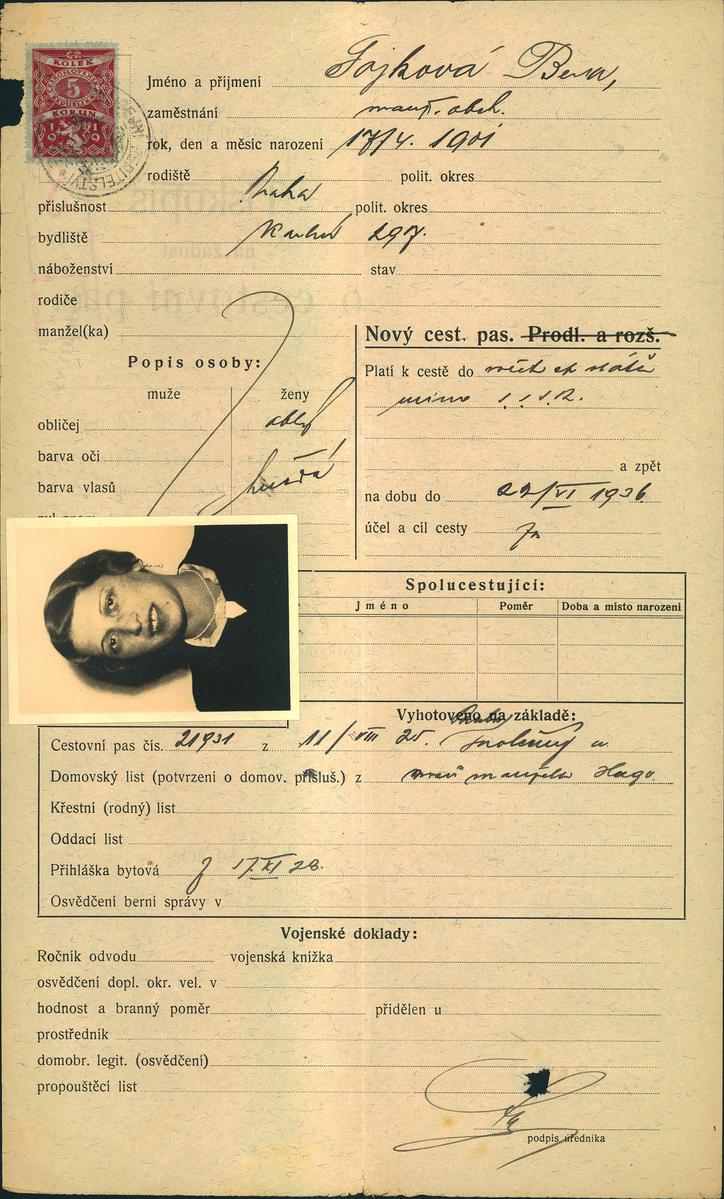 KOLEK
5
KORUN
1919
Jméno a příjmení Fojková
zaměstnání manž. obch.
rok, den a měsíc narození 17/4. 1901
rodiště polit. okres
příslušnost Praha polit. okres
bydliště 297.
náboženství stav
rodiče
manžel(ka)
Nový cest. pas. Prodl. a rozš.
Popis osoby:
Platí k cestě do
muže ženy
mimo
obličej
barva očí
a zpět
barva vlasů
na dobu do 22/VI 1936
účel a cíl cesty
Spolucestující:
Jméno Poměr Doba a místo narození
Vyhotoveno na základě:
Cestovní pas čís. 21931 z 11/VIII 25.
Domovský list (potvrzení o domov. přísluš.) z manžela Hugo
Křestní (rodný) list
Oddací list
Přihláška bytová 17.XI 28.
Osvědčení berní správy v
Vojenské doklady:
Ročník odvodu vojenská knížka
osvědčení dopl. okr. vel. v
hodnost a branný poměr přidělen u
prostředník
domobr. legit. (osvědčení)
propouštěcí list
podpis úředníka